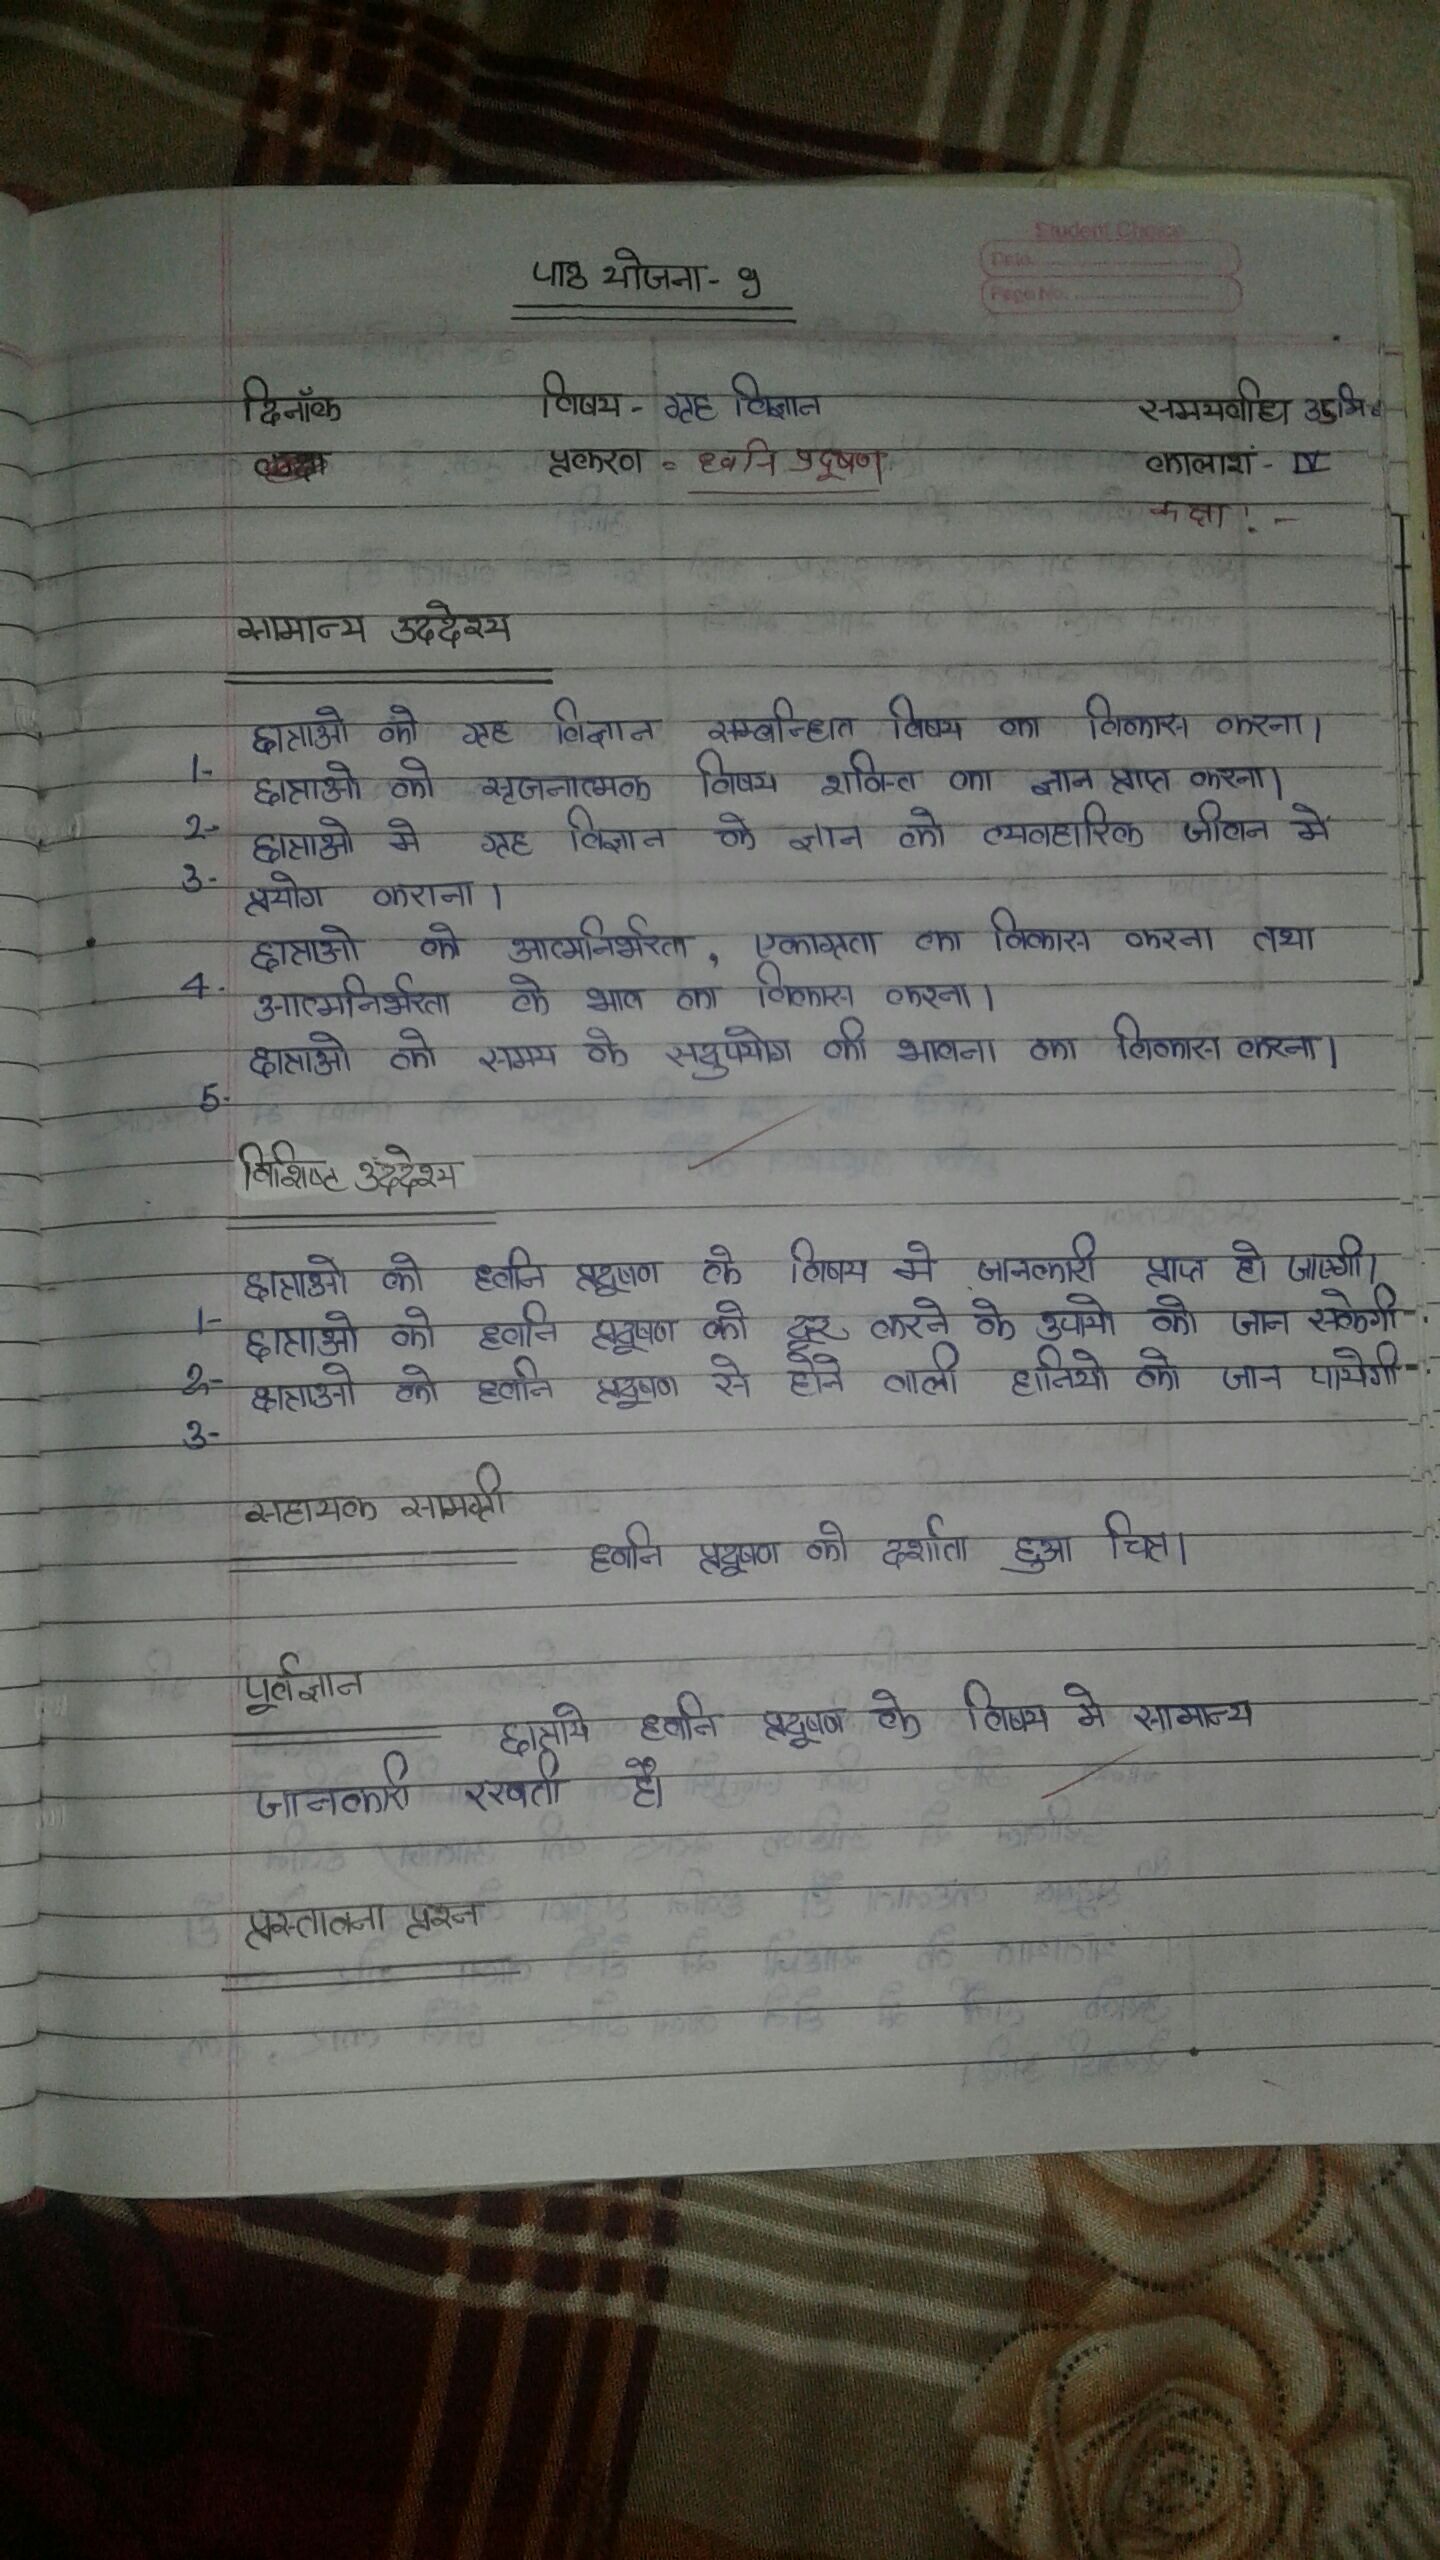 Student Choice
Date
Page No.
पाठ योजना - 9
दिनॉक विषय - गृह विज्ञान समयवधि 35 मि०
प्रकरण = ध्वनि प्रदूषण कालाशं - IV
कक्षा :-
सामान्य उददेश्य
1- छात्राओ को गृह विज्ञान सम्बन्धित विषय का विकास करना।
2- छात्राओ को सृजनात्मक विषय शक्ति का ज्ञान प्राप्त करना।
3- छात्राओ मे गृह विज्ञान के ज्ञान को व्यवहारिक जीवन मे
प्रयोग कराना।
4. छात्राओ को आत्मनिर्भरता, एकाग्रता का विकास करना तथा
आत्मनिर्भरता के भाव का विकास करना।
5. छात्राओ को समय के सदुपयोग की भावना का विकास करना।
विशिष्ट उददेश्य
1- छात्राओ को ध्वनि प्रदूषण के विषय मे जानकारी प्राप्त हो जाएगी।
2- छात्राओ को ध्वनि प्रदूषण को दूर करने के उपायो को जान सकेगी
3- छात्राओ को ध्वनि प्रदूषण से होने वाली हानियो को जान पायेगी
सहायक सामग्री
ध्वनि प्रदूषण को दर्शाता हुआ चित्र।
पूर्वज्ञान
छात्राये ध्वनि प्रदूषण के विषय मे सामान्य
जानकारी रखती है।
प्रस्तावना प्रश्न